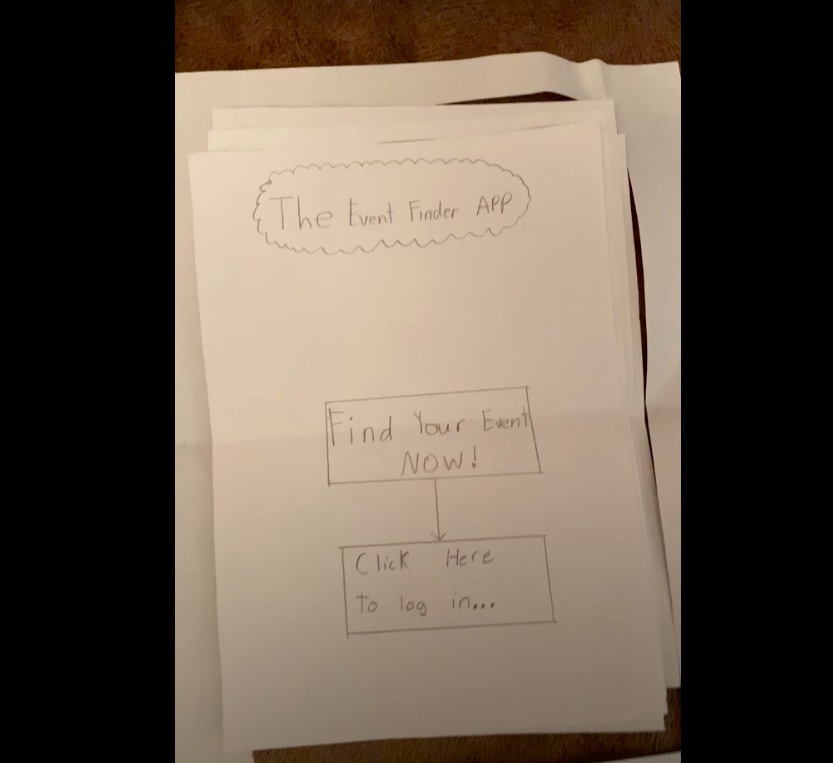 The Event Finder APP
Find Your Event
NOW!
Click Here
to log in...